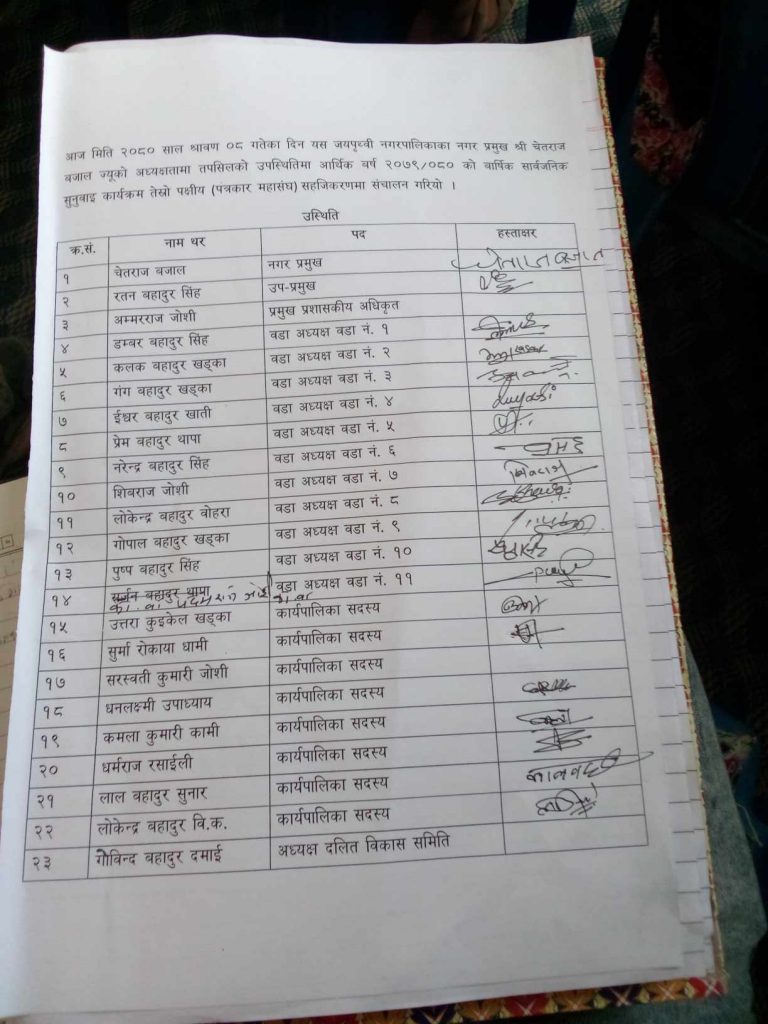 आज मिति २०८० साल श्रावण ०८ गतेका दिन यस जयपृथ्वी नगरपालिकाका नगर प्रमुख श्री चेतराज
बजाल ज्यूको अध्यक्षतामा तपसिलको उपस्थितिमा आर्थिक वर्ष २०७९/०८० को वार्षिक सार्वजनिक
सुनुवाइ कार्यक्रम तेस्रो पक्षीय (पत्रकार महासंघ) सहजिकरणमा संचालन गरियो ।
उस्थिति
क्र.सं. नाम थर पद हस्ताक्षर
१ चेतराज बजाल नगर प्रमुख चेतराज बजाल
२ रतन बहादुर सिंह उप-प्रमुख
३ अम्मरराज जोशी प्रमुख प्रशासकीय अधिकृत
४ डम्बर बहादुर सिंह वडा अध्यक्ष वडा नं. १
५ कलक बहादुर खड्का वडा अध्यक्ष वडा नं. २
६ गंग बहादुर खड्का वडा अध्यक्ष वडा नं. ३
७ ईश्वर बहादुर खाती वडा अध्यक्ष वडा नं. ४
८ प्रेम बहादुर थापा वडा अध्यक्ष वडा नं. ५
९ नरेन्द्र बहादुर सिंह वडा अध्यक्ष वडा नं. ६
१० शिबराज जोशी वडा अध्यक्ष वडा नं. ७
११ लोकेन्द्र बहादुर वोहरा वडा अध्यक्ष वडा नं. ८
१२ गोपाल बहादुर खड्का वडा अध्यक्ष वडा नं. ९
१३ पुष्प बहादुर सिंह वडा अध्यक्ष वडा नं. १०
१४ सर्जन बहादुर थापा वडा अध्यक्ष वडा नं. ११
का. वा.
१५ उत्तरा कुइकेल खड्का कार्यपालिका सदस्य
१६ सुर्मा रोकाया धामी कार्यपालिका सदस्य
१७ सरस्वती कुमारी जोशी कार्यपालिका सदस्य
१८ धनलक्ष्मी उपाध्याय कार्यपालिका सदस्य
१९ कमला कुमारी कामी कार्यपालिका सदस्य
२० धर्मराज रसाईली कार्यपालिका सदस्य
२१ लाल बहादुर सुनार कार्यपालिका सदस्य
२२ लोकेन्द्र बहादुर वि.क. कार्यपालिका सदस्य
२३ गोविन्द बहादुर दमाई अध्यक्ष दलित विकास समिति